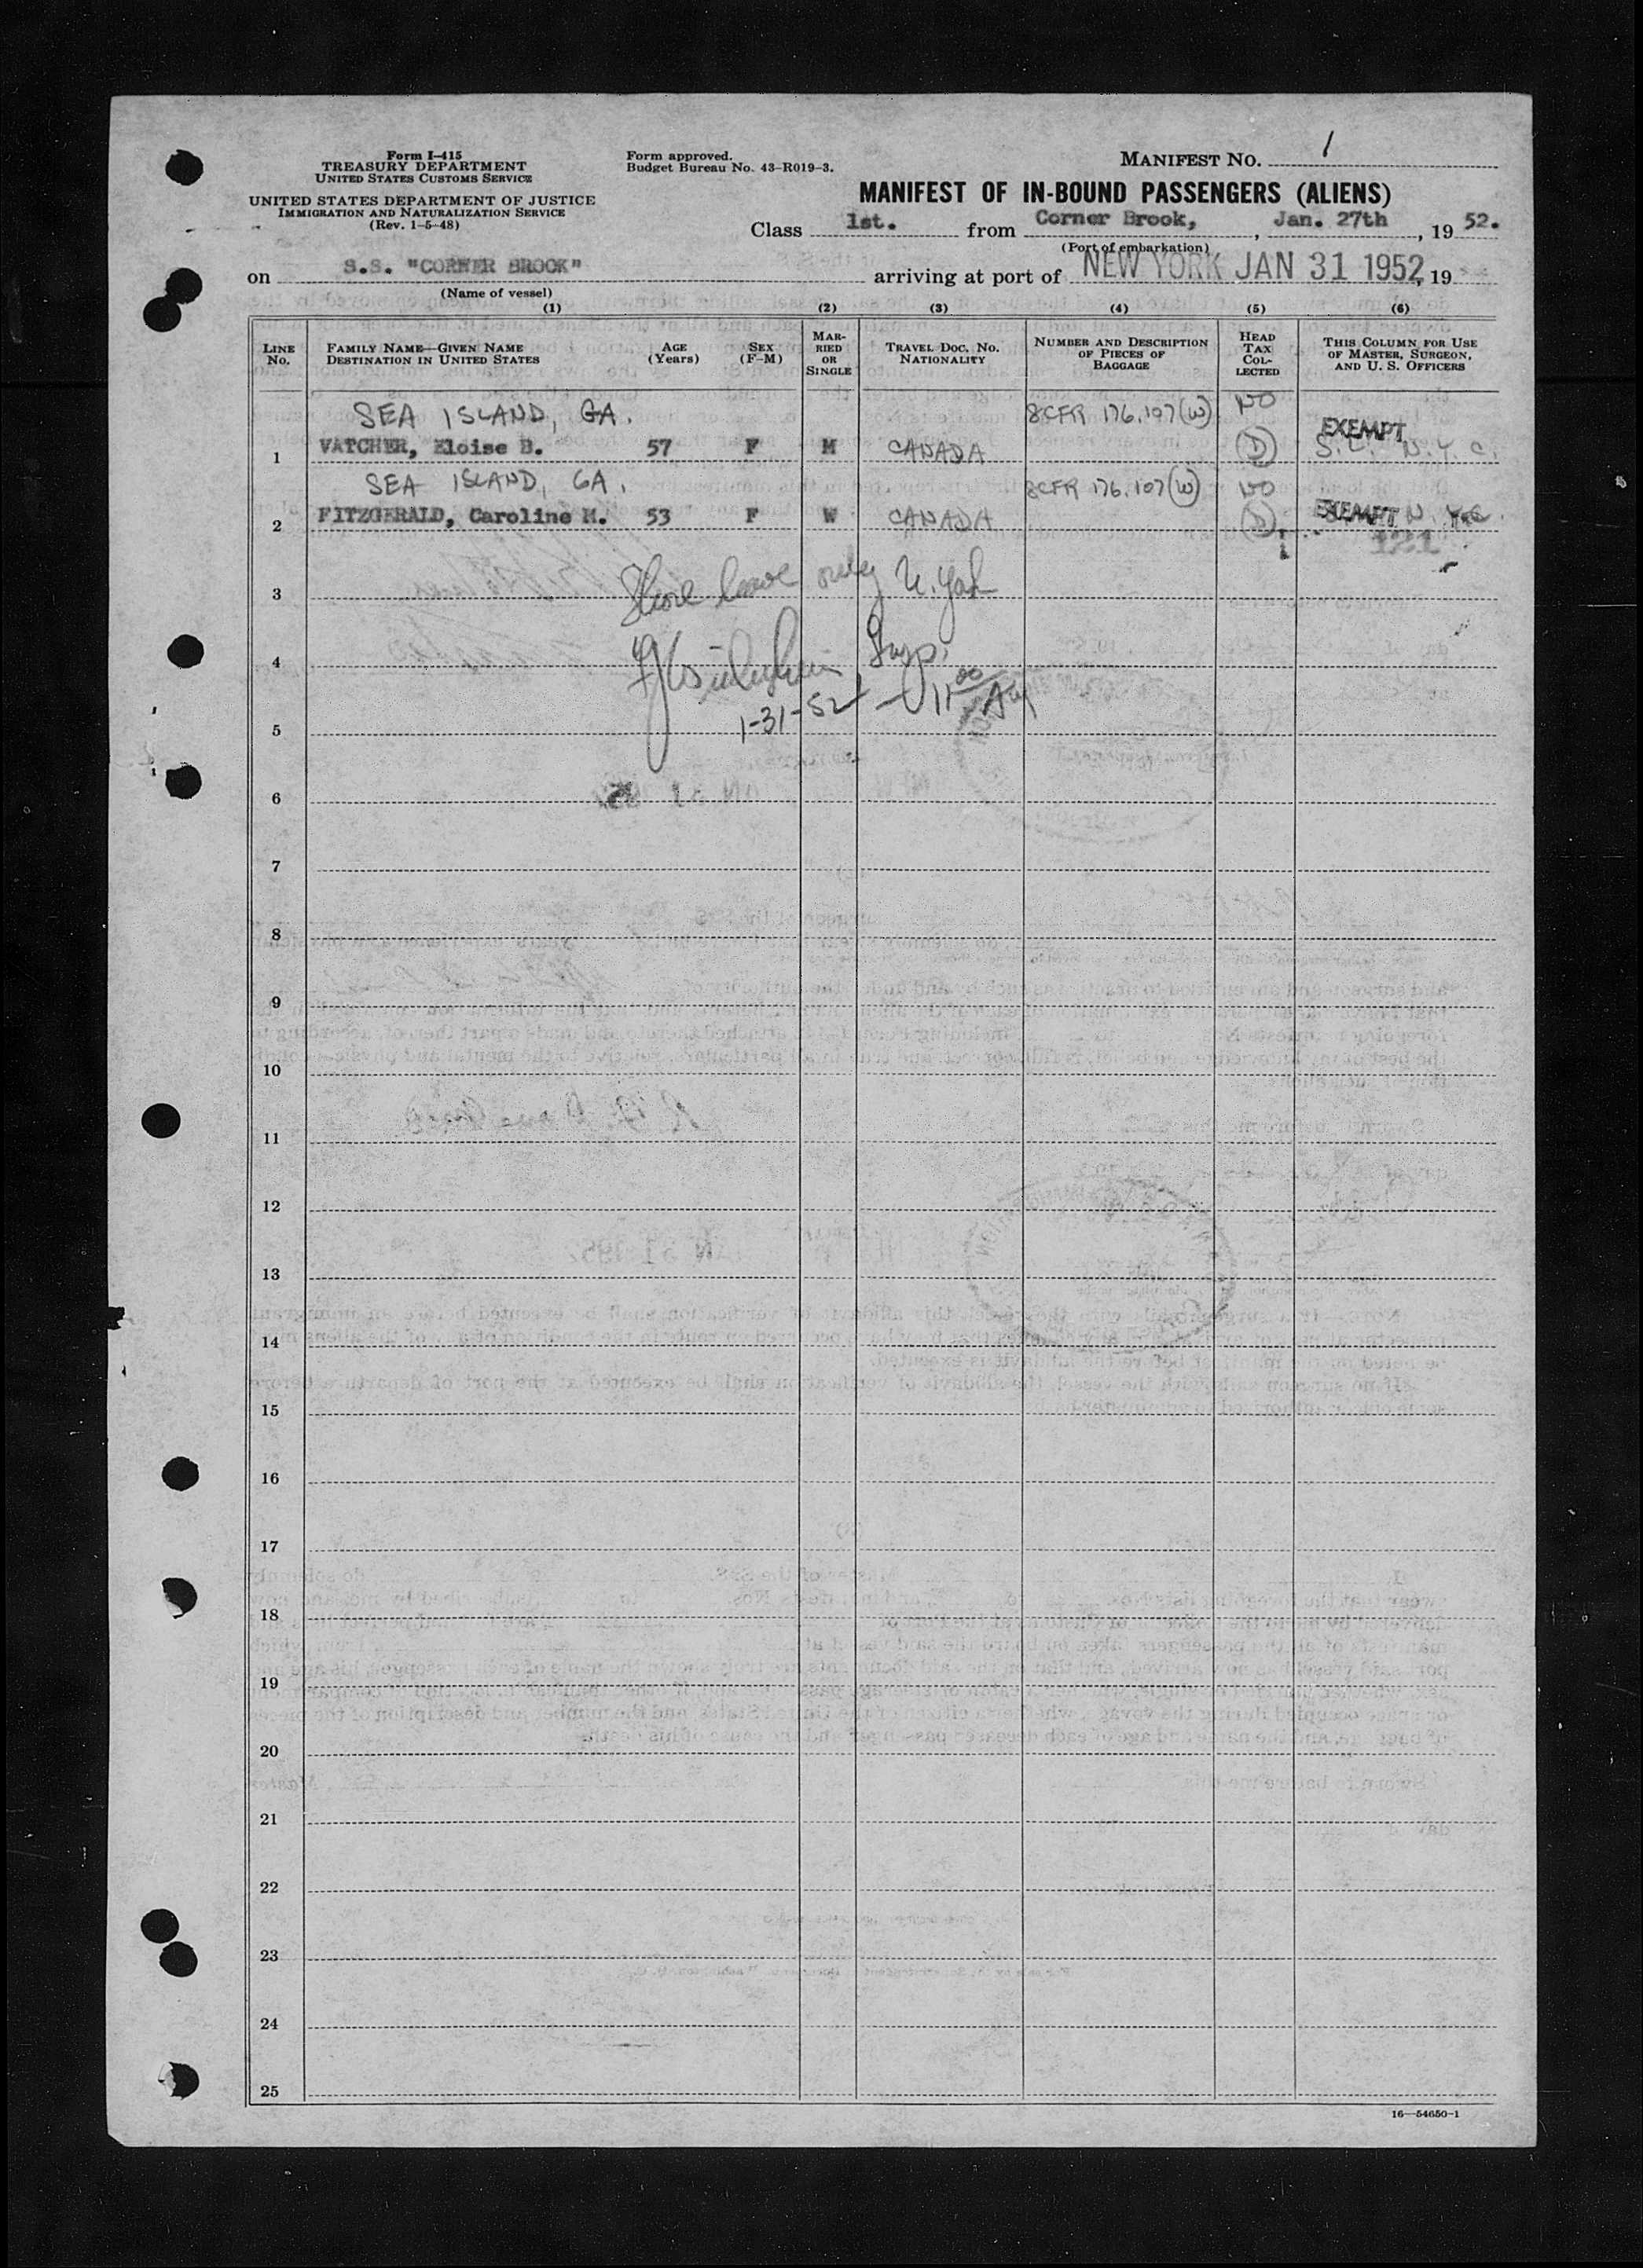 Form I-415
TREASURY DEPARTMENT
UNITED STATES CUSTOMS SERVICE
UNITED STATES DEPARTMENT OF JUSTICE
IMMIGRATION AND NATURALIZATION SERVICE
(Rev. 1-5-48)
Form approved.
Budget Bureau No. 43-R019-3.
MANIFEST NO. 1
MANIFEST OF IN-BOUND PASSENGERS (ALIENS)
Class 1st. from Corner Brook, , Jan. 27th , 19 52.
(Port of embarkation)
on S.S. "CORNER BROOK" arriving at port of NEW YORK JAN 31 1952, 19
(Name of vessel)
(1) (2) (3) (4) (5) (6)
LINE No. FAMILY NAME—GIVEN NAME DESTINATION IN UNITED STATES AGE (Years) SEX (F-M) MARRIED OR SINGLE TRAVEL DOC. NO. NATIONALITY NUMBER AND DESCRIPTION OF PIECES OF BAGGAGE HEAD TAX COLLECTED THIS COLUMN FOR USE OF MASTER, SURGEON, AND U. S. OFFICERS
SEA ISLAND, GA. 8CFR 176.107(W) NO EXEMPT
1 VATCHER, Eloise B. 57 F M CANADA (D) S.L. N.Y.C.
SEA ISLAND, GA. 8CFR 176.107(W) NO
2 FITZGERALD, Caroline M. 53 F W CANADA (D) EXEMPT N.Y.C.
121
3 Shore leave only N. York
4 Insp.
1-31-52 - 11 00 AM
5
6
7
8
9
10
11
12
13
14
15
16
17
18
19
20
21
22
23
24
25
16—54650-1